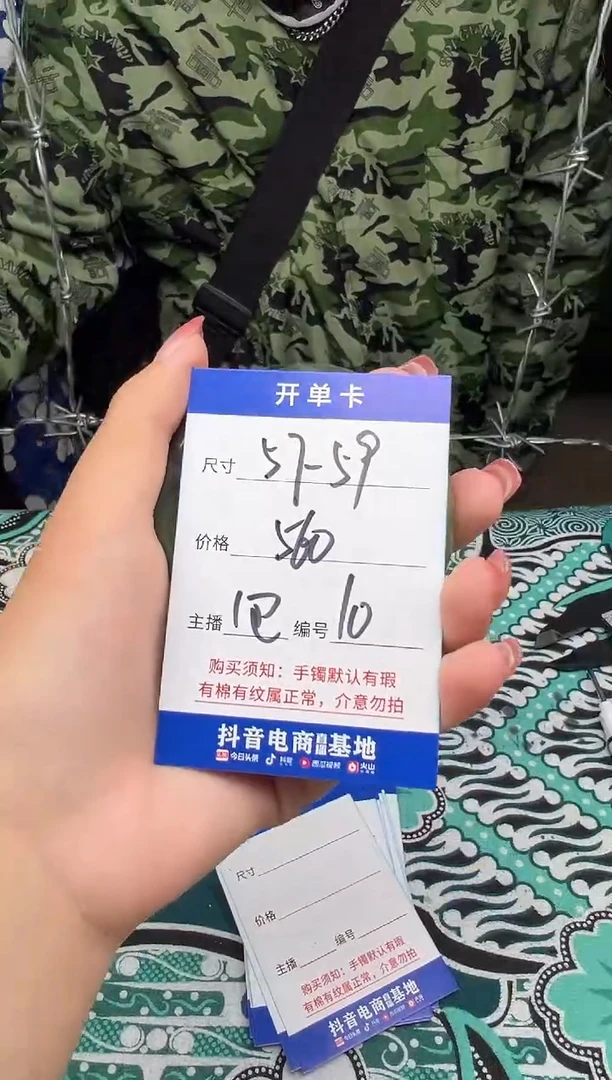 开单卡
尺寸 57-59
价格 560
主播 1巴 编号 10
购买须知：手镯默认有瑕
有棉有纹属正常，介意勿拍
抖音电商直播基地
今日头条 抖音 西瓜视频 火山
尺寸
价格
主播 编号
购买须知：手镯默认有瑕
有棉有纹属正常，介意勿拍
抖音电商直播基地